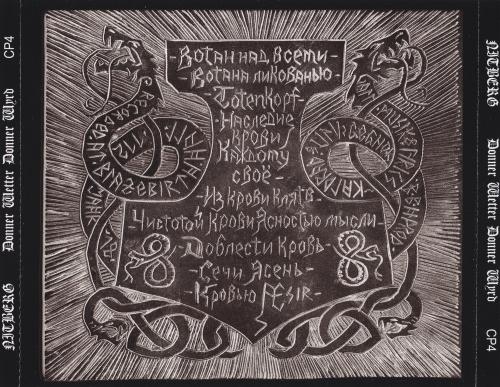 NITBERG Donner Wetter Donner Wyrd CP4
-Вотан над всеми-
-Вотана ликованью-
-Totenkopf-
-Наследие
крови
Каждому
своё-
-Из крови клятв-
Чистотой крови Ясностью мысли
-Доблести кровь-
-Сечи Ясень-
-Кровью Æsir-
NITBERG Donner Wetter Donner Wyrd CP4